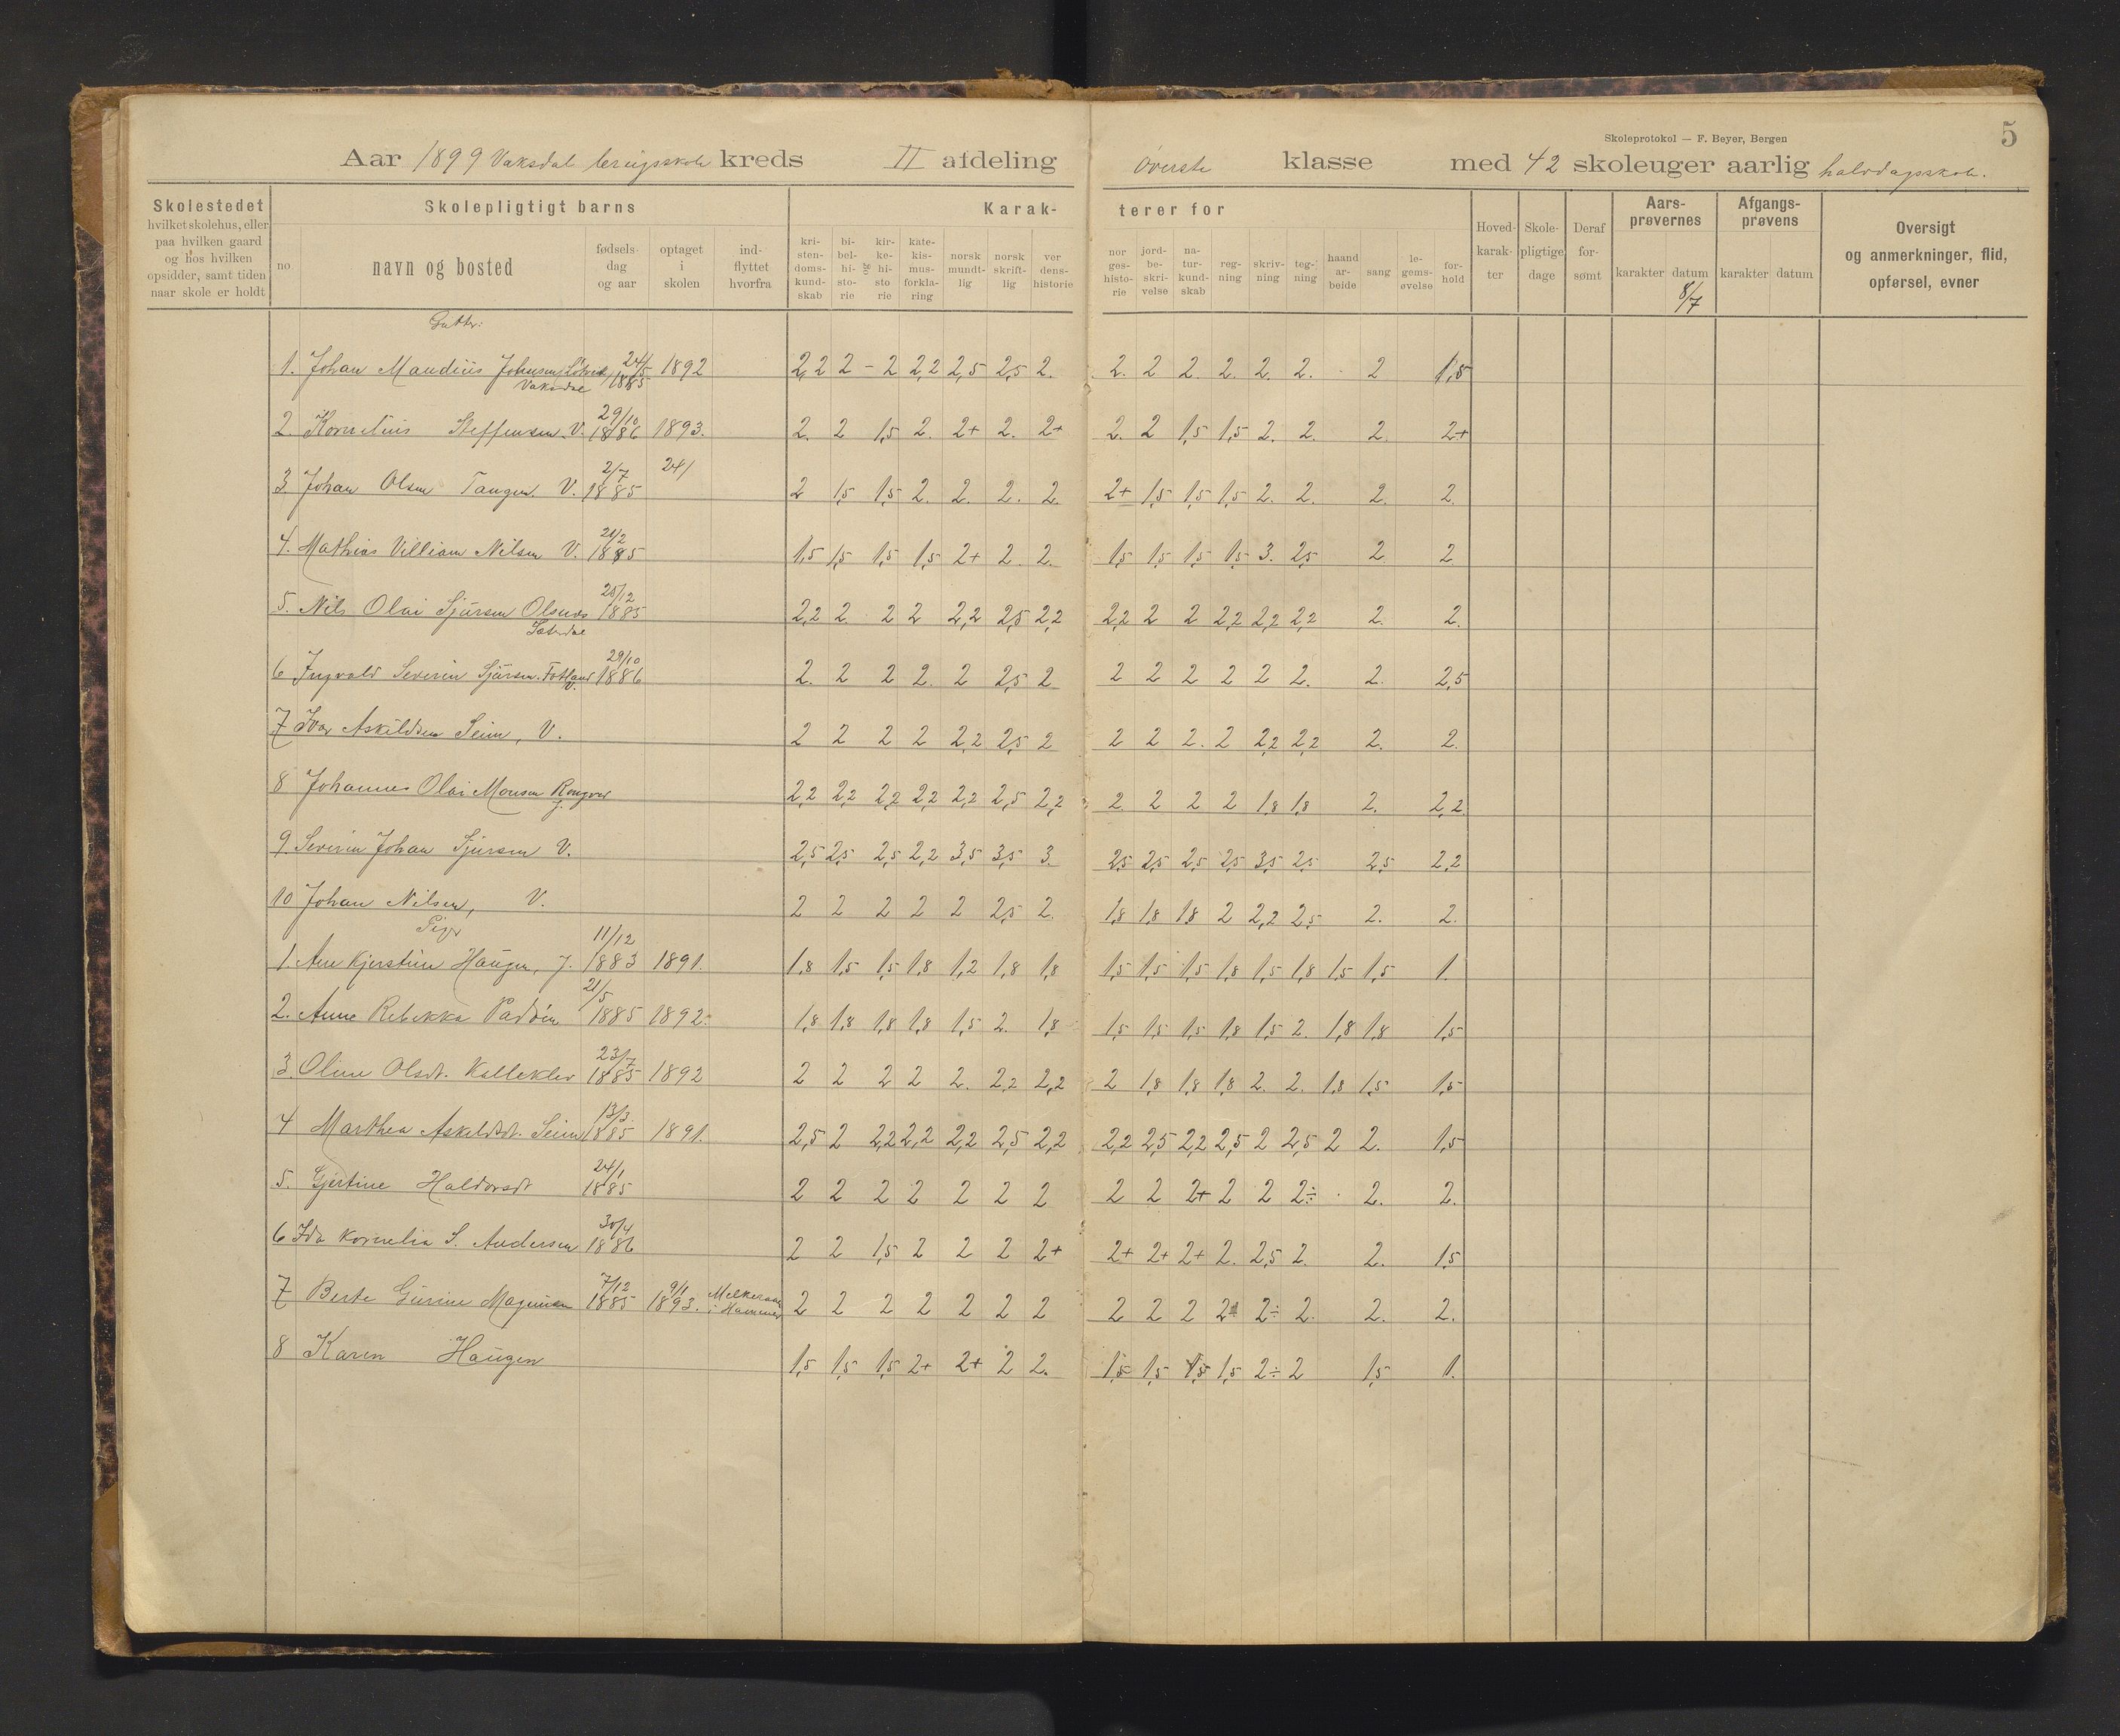 Skoleprotokol — F. Beyer, Bergen
5
Aar 1899 Vaksdal kreds II afdeling øverste klasse med 42 skoleuger aarlig halvdagsskole.
Skolestedet
hvilket skolehus, eller
paa hvilken gaard
og hos hvilken
opsidder, samt tiden
naar skole er holdt
Skolepligtigt barns
no.
navn og bosted
fødsels-
dag
og aar
optaget
i
skolen
ind-
flyttet
hvorfra
Karak-
terer for
kri-
sten-
doms-
kund-
skab
bi-
bel-
hi-
sto-
rie
og
kir-
ke-
hi-
sto
rie
kate-
kis-
mus-
forkla-
ring
norsk
mundt-
lig
norsk
skrift-
lig
ver
dens-
historie
nor
ges-
histo-
rie
jord-
be-
skri-
velse
na-
tur-
kund-
skab
reg-
ning
skriv-
ning
teg-
ning
haand
ar-
beide
sang
le-
gems-
øvelse
for-
hold
Hoved-
karak-
ter
Skole-
pligtige
dage
Deraf
for-
sømt
Aars-
prøvernes
karakter datum
8/7
Afgangs-
prøvens
karakter datum
Oversigt
og anmerkninger, flid,
opførsel, evner
Gutter:
1. Johan Mandius Johnsen 24/5 1885 1892 2,2 2 – 2 2,2 2,5 2,5 2. 2. 2 2. 2. 2. 2. 2 1,5
Vaksdal
2. Kornelius Steffensen V. 29/10 1886 1893. 2. 2 1,5 2. 2+ 2. 2+ 2. 2 1,5 1,5 2. 2. 2. 2+
3. Johan Olsen Tangen V. 2/7 1885 24/ 2 1,5 1,5 2. 2. 2. 2. 2+ 1,5 1,5 1,5 2. 2. 2. 2.
4. Mathias Villiam Nilsen V. 21/2 1885 1,5 1,5 1,5 1,5 2+ 2. 2. 1,5 1,5 1,5 1,5 3. 2,5 2 2
5. Nils Olai Sjursen Olsnes 28/12 1885 2,2 2. 2 2 2,2 2,5 2,2 2,2 2 2 2,2 2,2 2,2 2. 2.
6 Ingvald Severin Sjursen Fotland V. 29/10 1886 2. 2 2 2. 2 2,5 2 2 2 2 2 2 2. 2. 2,5
7 Ivar Askildsen Seim, V. 2 2 2 2 2,2 2,5 2 2 2 2. 2 2,2 2,2 2. 2.
8 Johannes Olai Monsen 2,2 2,2 2,2 2,2 2,2 2,5 2,2 2 2 2 2 1,8 1,8 2. 2,2
9. Severin Johan Sjursen V. 2,5 2,5 2,5 2,2 3,5 3,5 3. 2,5 2,5 2,5 2,5 3,5 2,5 2,5 2,2
10 Johan Nilsen, V. 2 2 2 2 2 2,5 2. 1,8 1,8 1,8 2 2,2 2,5 2. 2.
Piger
1. Ane Kjerstine Haugen, J. 11/12 1883 1891. 1,8 1,5 1,5 1,8 1,2 1,8 1,8 1,5 1,5 1,5 1,8 1,5 1,8 1,5 1,5 1.
2. Anne Rebekka Paddøen 21/5 1885 1892. 1,8 1,8 1,8 1,8 1,5 2. 1,8 1,5 1,5 1,5 1,8 1,5 2. 1,8 1,8 1,5
3. Oline Olsdt. Kalleklev 23/7 1885 1892 2 2 2 2 2. 2,2 2,2 2 1,8 1,8 1,8 2. 2. 1,8 1,5 1,5
4 Marthea Askeldsdt. Seim 13/3 1885 1891. 2,5 2 2,2 2,2 2,2 2,5 2,2 2,2 2,5 2,2 2,5 2 2,5 2 2. 1,5
5. Gjertine Haldorsdt 24/1 1885 2 2 2 2 2 2 2 2 2 2+ 2 2 2÷ 2. 2.
6 Ida Kornelia S. Andersen 30/4 1886 2 2 1,5 2 2 2 2+ 2+ 2+ 2+ 2. 2,5 2. 2. 1,5
7 Berte Gurine Magnussen 7/12 1885 9/1 1893. i Hammer 2 2 2 2 2 2 2 2 2 2 2 2÷ 2. 2. 2.
8 Karen Haugen 1,5 1,5 1,5 2+ 2+ 2 2. 1,5 1,5 1,5 1,5 2÷ 2 1,5 1.